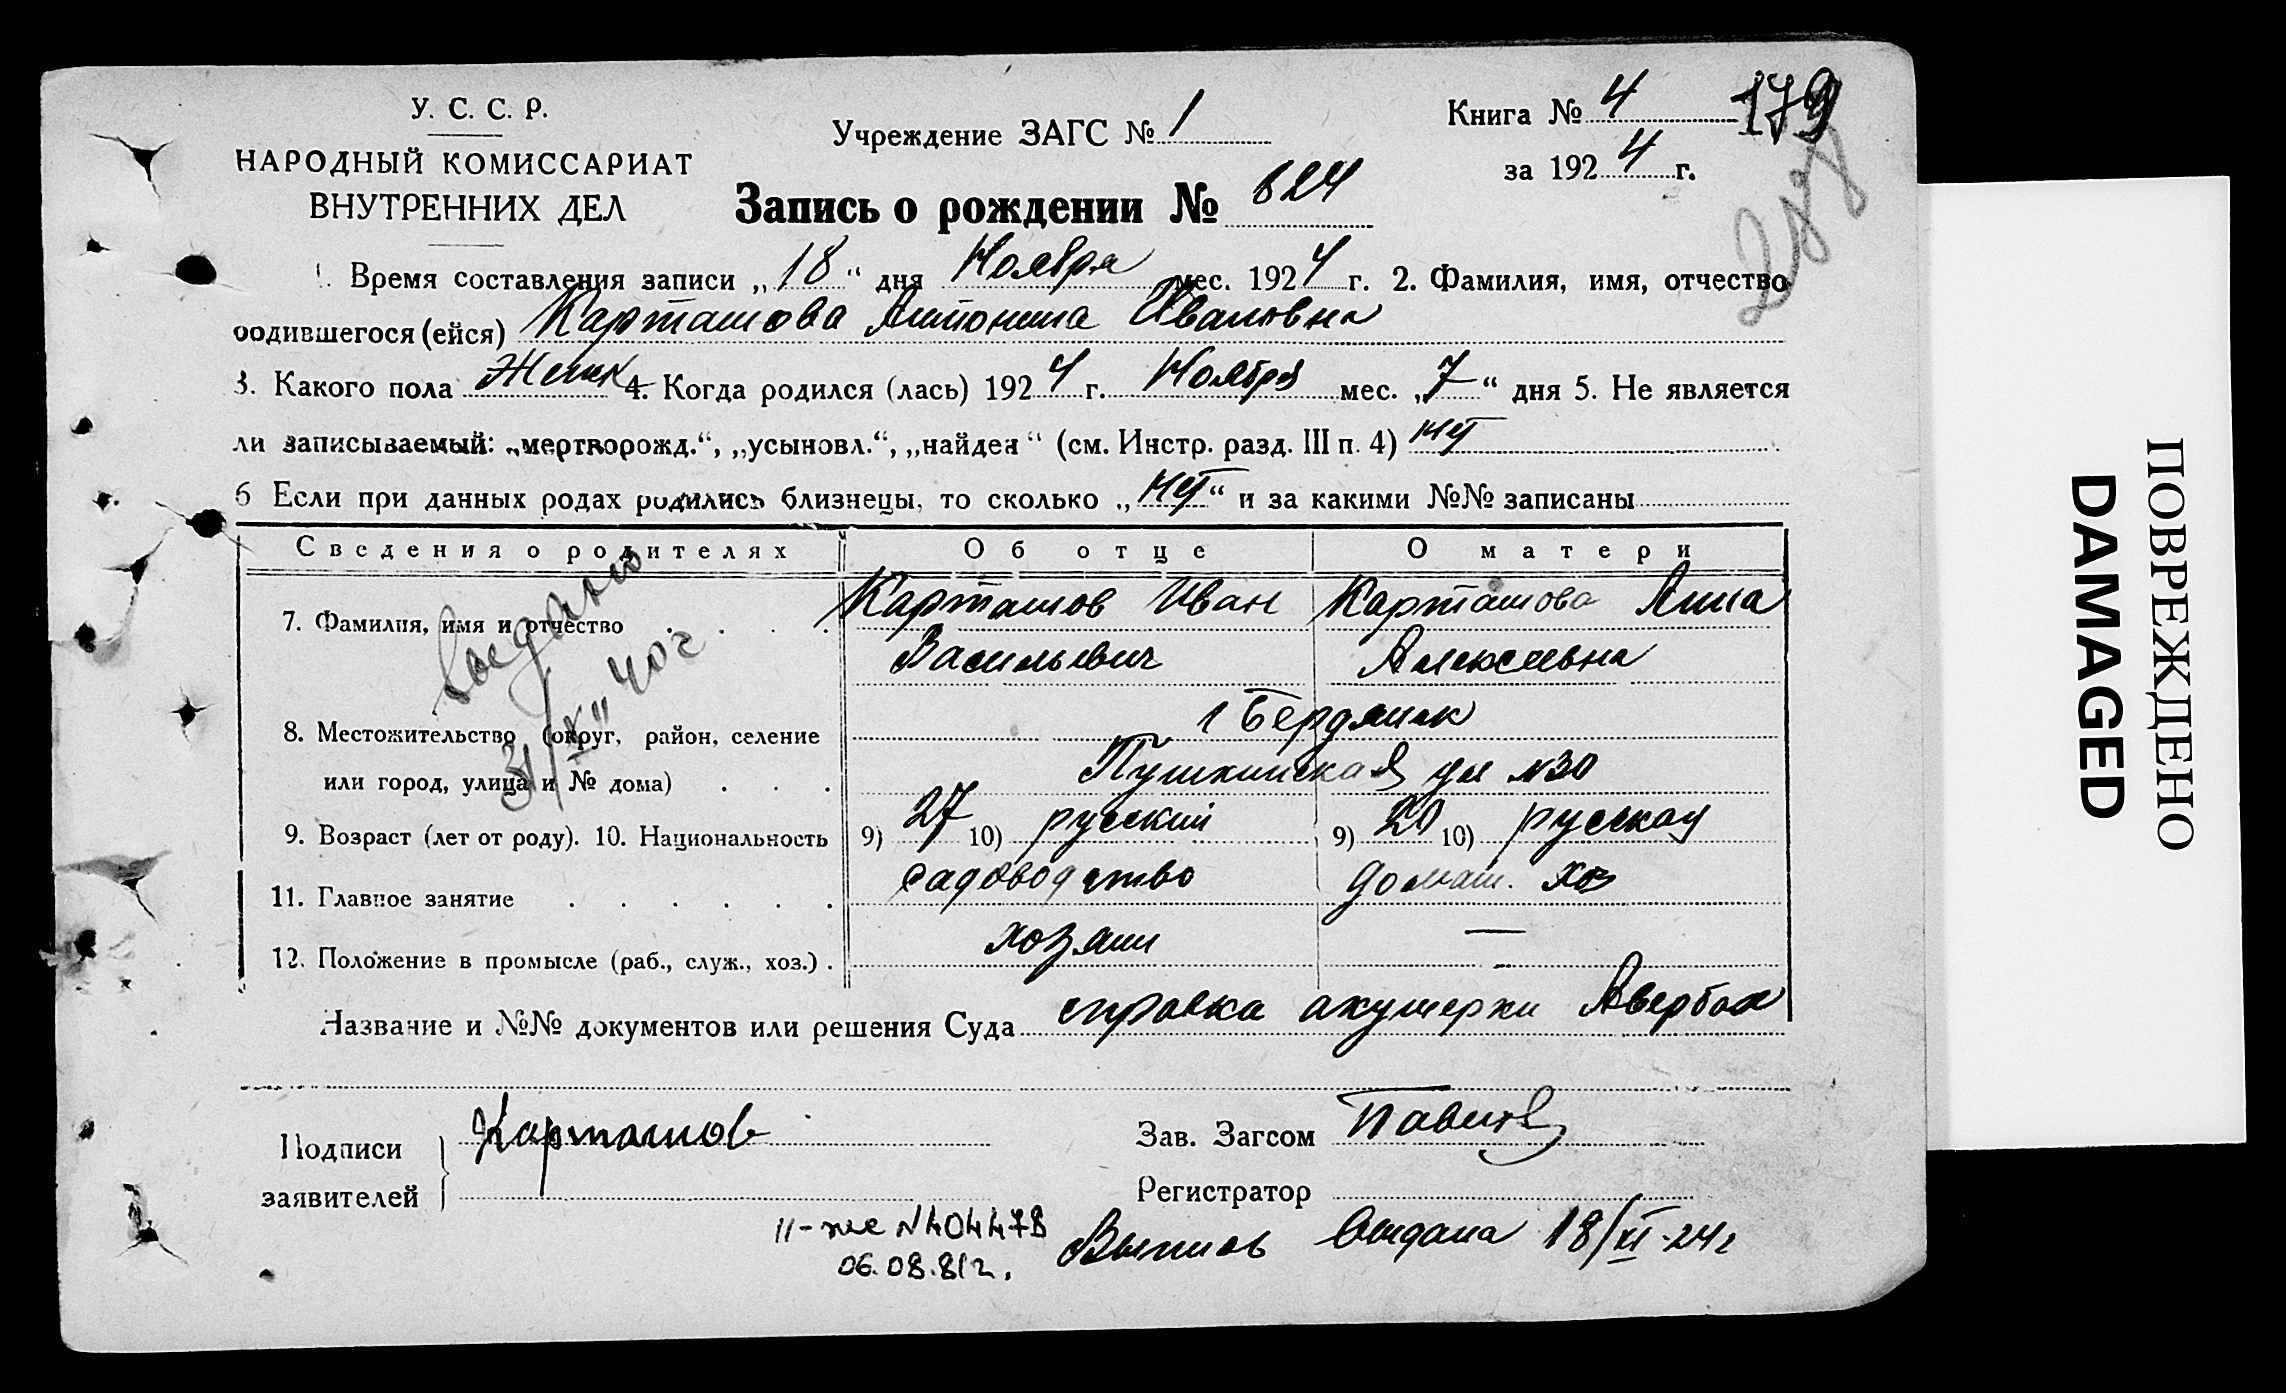 У. С. С. Р.
НАРОДНЫЙ КОМИССАРИАТ
ВНУТРЕННИХ ДЕЛ
Учреждение ЗАГС № 1
Книга № 4
179
за 1924 г.
Запись о рождении № 624
1. Время составления записи „18“ дня Ноября мес. 1924 г. 2. Фамилия, имя, отчество
родившегося (ейся) Карташова Антонина Ивановна
3. Какого пола Женск 4. Когда родился (лась) 1924 г. Ноября мес. „7“ дня 5. Не является
ли записываемый: „мертворожд.“, „усыновл.“, „найден“ (см. Инстр. разд. III п. 4) нет
6 Если при данных родах родились близнецы, то сколько „нет“ и за какими №№ записаны
Сведения о родителях Об отце О матери
7. Фамилия, имя и отчество . . . . Карташов Иван Карташова Анна
Васильевич Алексеевна
8. Местожительство (округ, район, селение г Бердянск
или город, улица и № дома) . . . Пушкинская ул №30
9. Возраст (лет от роду). 10. Национальность 9) 27 10) русский 9) 20 10) русская
11. Главное занятие . . . . . . садоводство домаш. хоз
12. Положение в промысле (раб., служ., хоз.) . хозяин —
Название и №№ документов или решения Суда справка акушерки Авербах
Подписи заявителей Карташов
Зав. Загсом
Регистратор
II-же №404478
06.08.812.
Выпись выдана 18/XI-24г
выдано
31/XII 40г
ПОВРЕЖДЕНО
DAMAGED